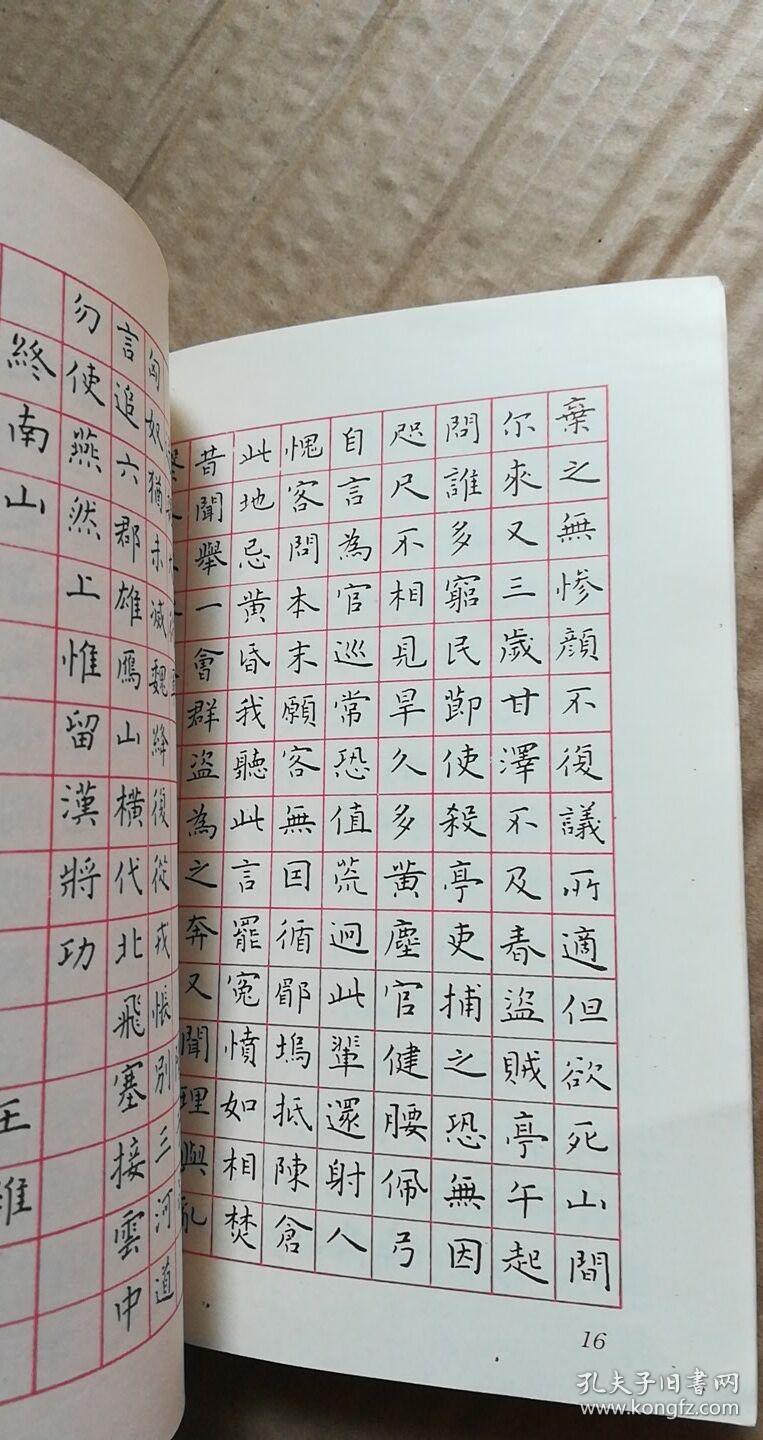 棄之無慘顏不復議所適但欲死山間
尔來又三歲甘澤不及春盜賊亭午起
問誰多窮民莭使殺亭吏捕之恐無因
咫尺不相見旱久多黃塵官健腰佩弓
自言為官巡常恐值荒迥此輩還射人
愧客問本末願客無囙循郿塢抵陳倉
此地忌黃昏我聽此言罷冤憤如相焚
昔聞舉一會群盜為之奔又聞理與亂
匈奴猶未滅魏絳復從戎悵別三河道
言追六郡雄鴈山橫代北飛塞接雲中
勿使燕然上惟留漢將功
終南山
王維
16
孔夫子旧書网
www.kongfz.com